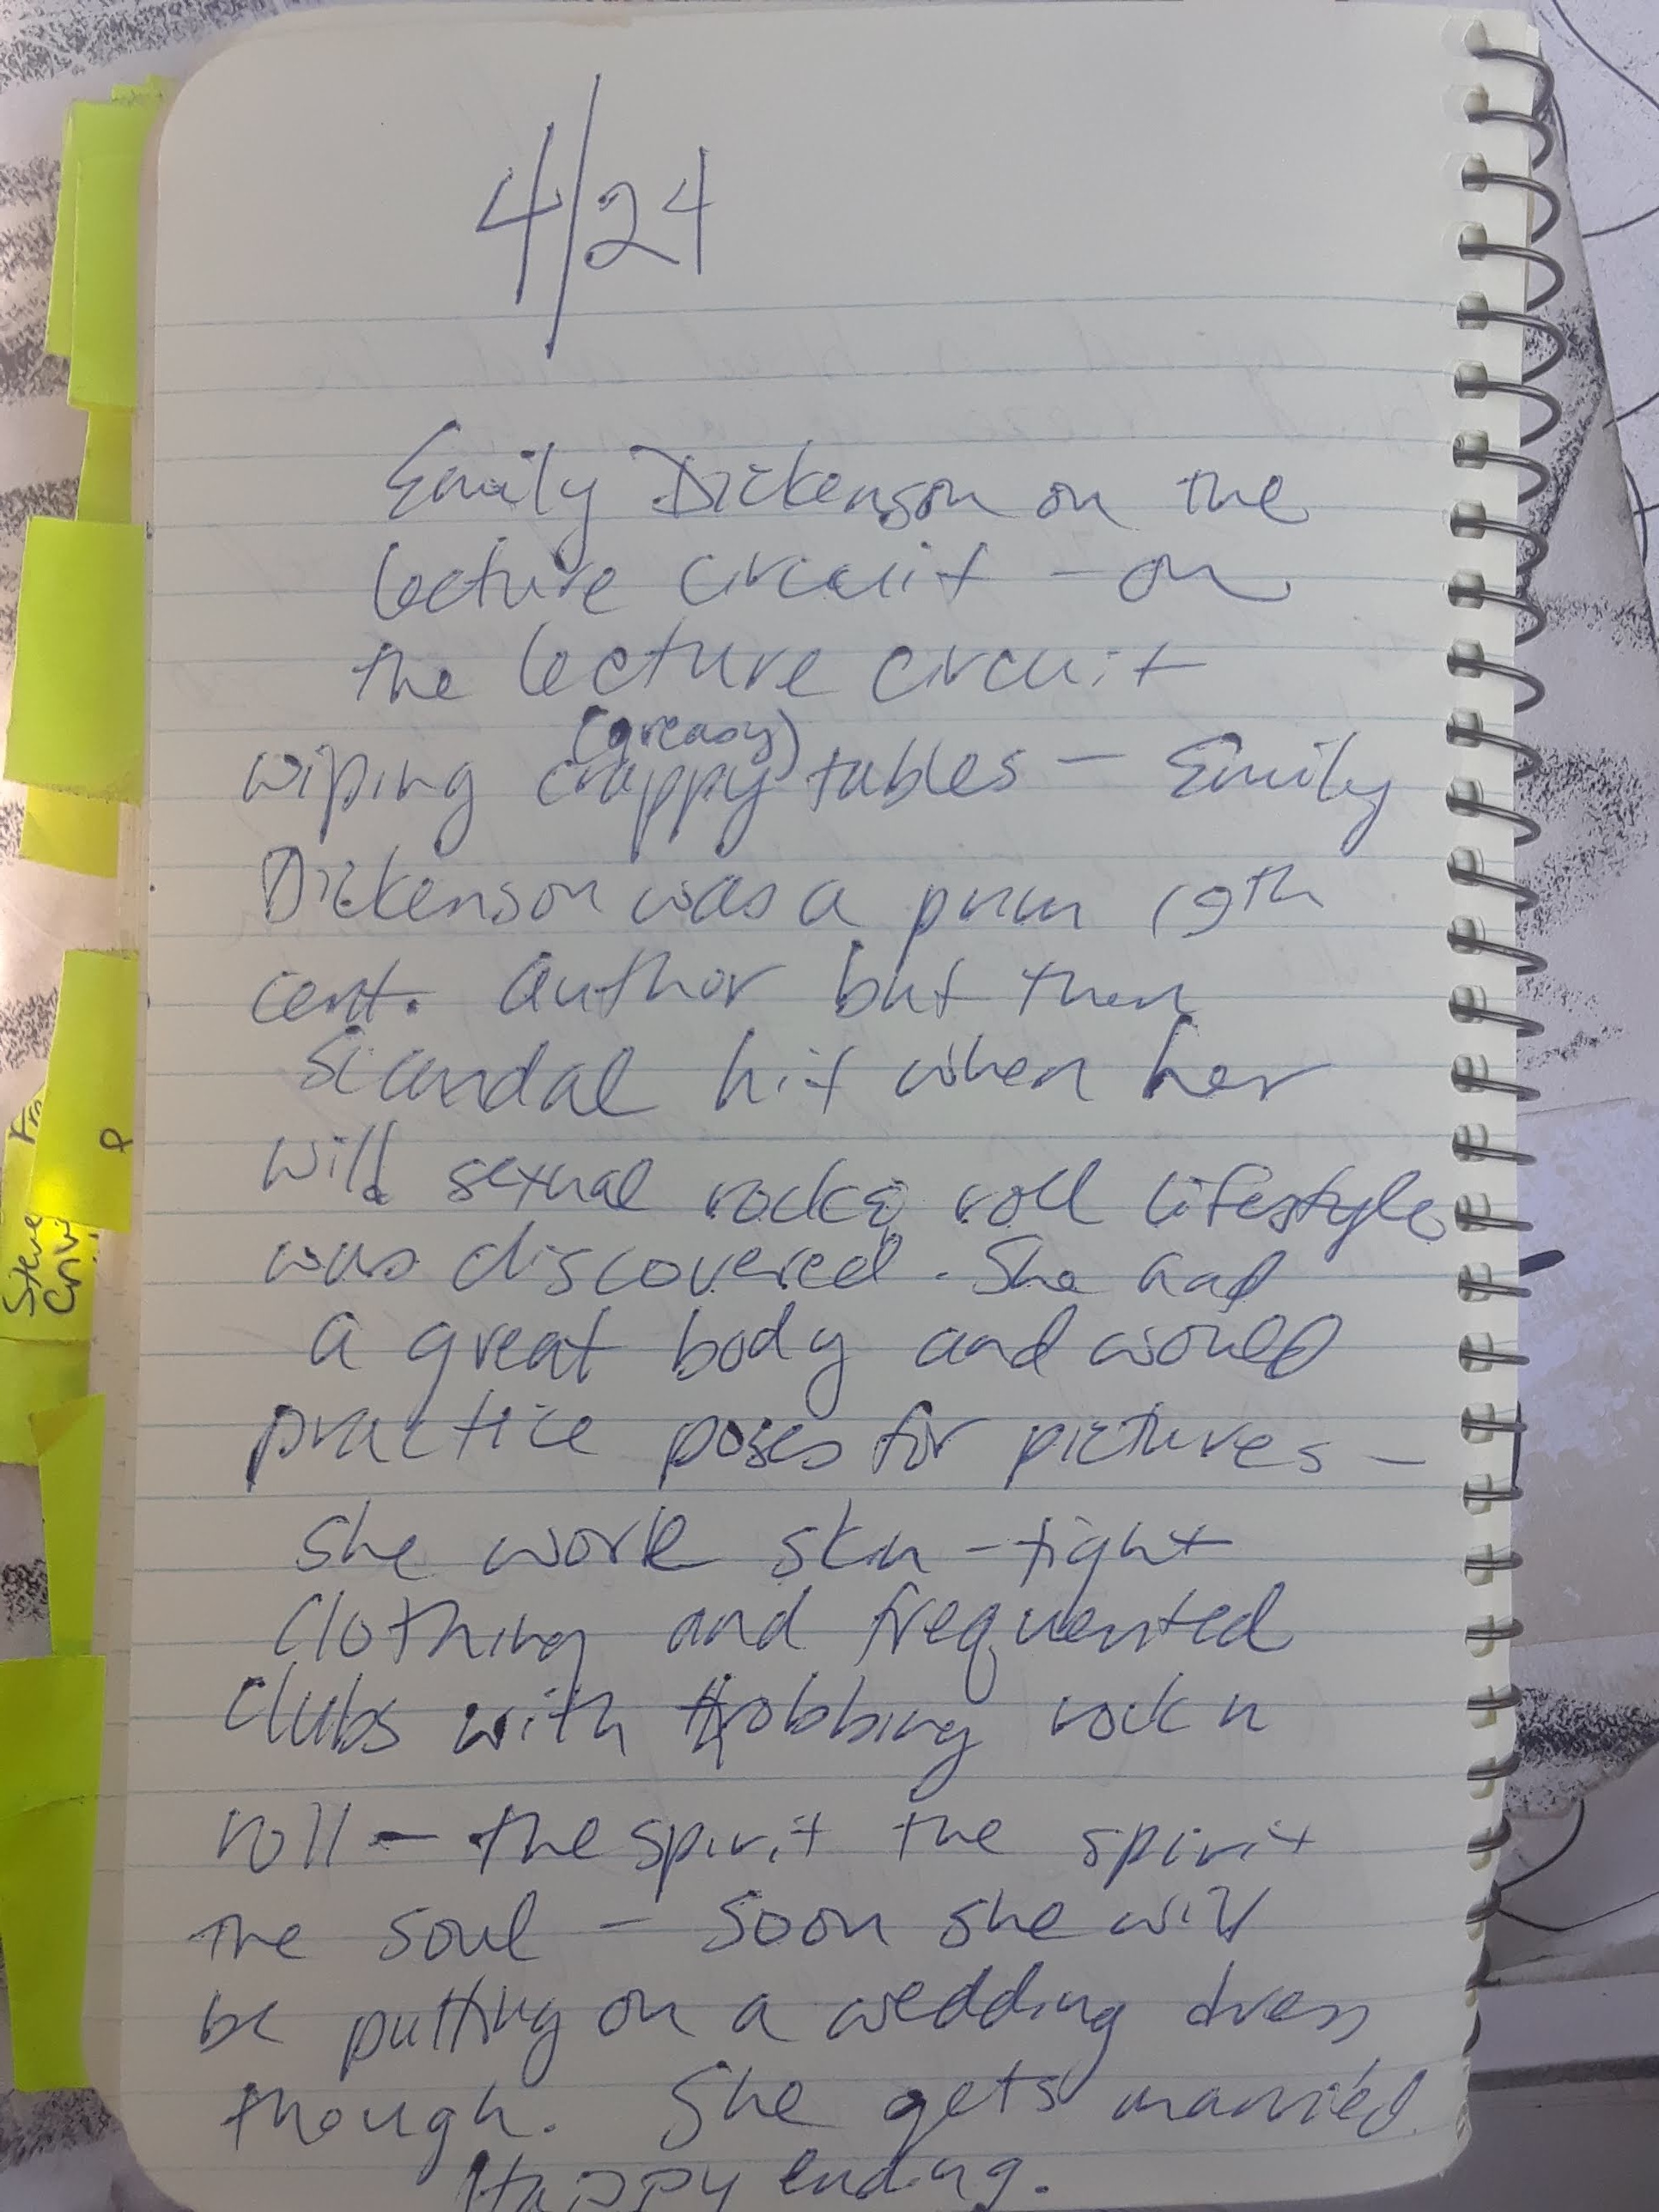 4/24
Emily Dickenson on the
lecture circuit – on
the lecture circuit
(greasy)
wiping crappy tables – Emily
Dickenson was a prim 19th
cent. author but then
Scandal hit when her
wild sexual rock & roll lifestyle
was discovered. She had
a great body and would
practice poses for pictures –
she wore skin-tight
clothing and frequented
Clubs with throbbing rock n
roll – the spirit the spirit
the soul – Soon she will
be putting on a wedding dress
though. She gets married.
Happy ending.
Steve